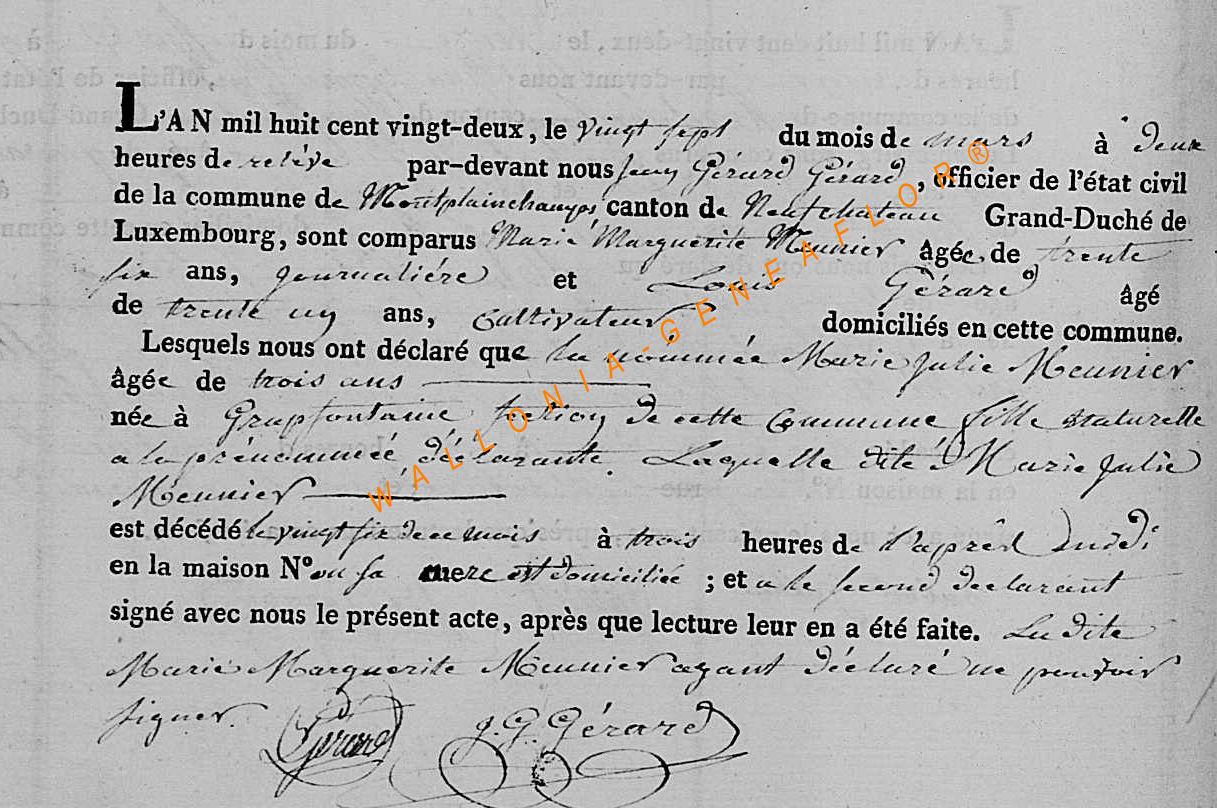 L'AN mil huit cent vingt-deux, le vingt sept du mois de mars à deux
heures de relévé par-devant nous Jean Gérard Gérard, officier de l'état civil
de la commune de Montplainchamps canton de Neufchateau Grand-Duché de
Luxembourg, sont comparus Marie Marguerite Meunier âgée de trente
six ans, journaliére et Louis Gérard âgé
de trente un ans, cultivateur domiciliés en cette commune.
Lesquels nous ont déclaré que la nommée Marie Julie Meunier
âgée de trois ans
née à Grapfontaine section de cette commune fille naturelle
a la prénommée déclarante. Laquelle dite Marie Julie
Meunier
est décédé le vingt six de ce mois à trois heures de l'aprês midi
en la maison N° ou sa mere est domiciliée ; et a le second declarant
signé avec nous le présent acte, après que lecture leur en a été faite. La dite
Marie Marguerite Meunier ayant déclaré ne pouvoir
signer.
Gérard J. G. Gérard
WALLONIA-GENEAFLOR®